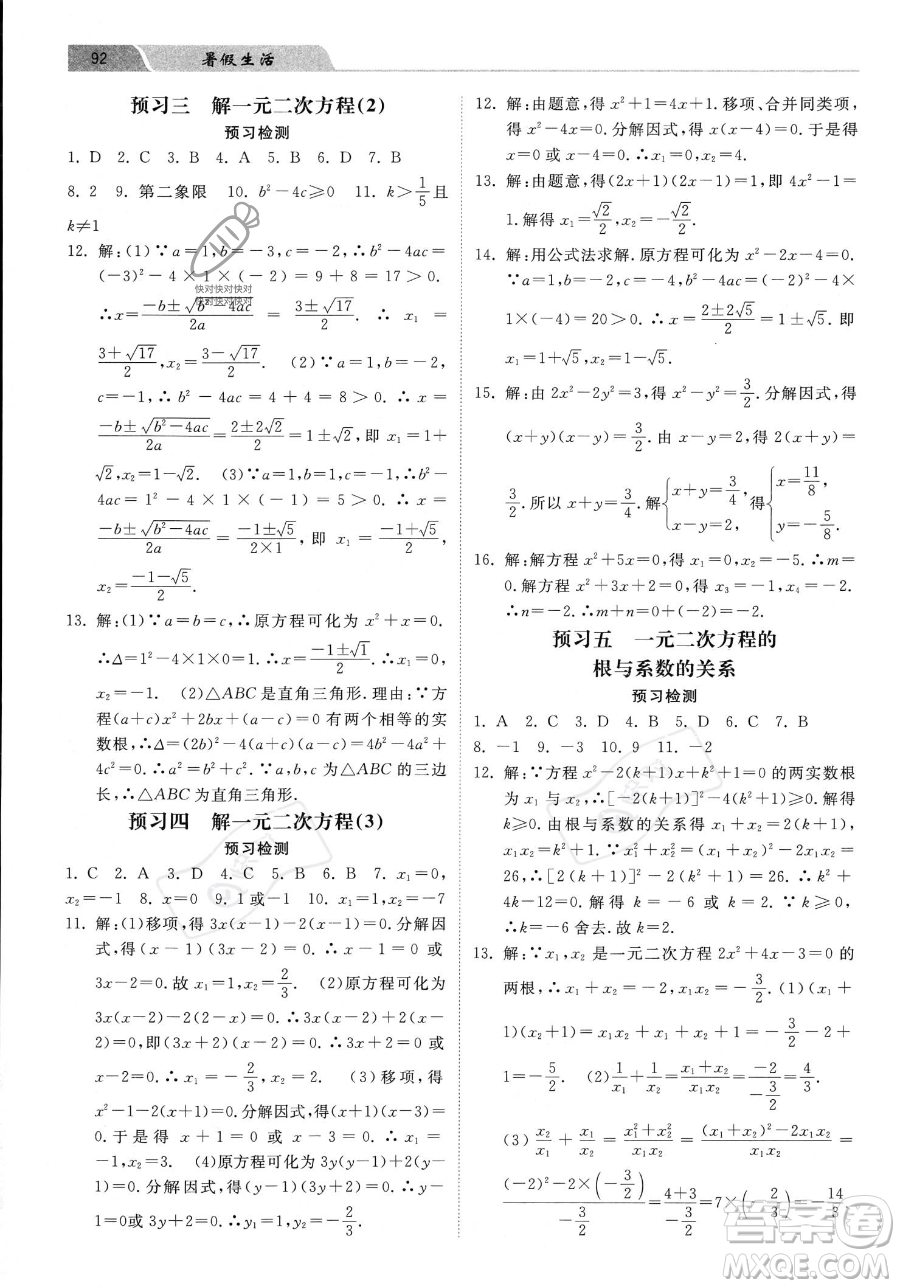 92 暑假生活
预习三 解一元二次方程(2)
预习检测
1. D 2. C 3. B 4. A 5. D 6. D 7. B
8. 2 9. 第二象限 10. b²-4c≥0 11. k>1/5且
k≠1
12. 解:(1)∵a=1,b=-3,c=-2,∴b²-4ac=
(-3)²-4×1×(-2)=9+8=17>0.
∴x=(-b±√(b²-4ac))/2a=(3±√17)/2. ∴x₁=
(3+√17)/2,x₂=(3-√17)/2. (2)∵a=1,b=-2,
c=-1,∴b²-4ac=4+4=8>0. ∴x=
(-b±√(b²-4ac))/2a=(2±2√2)/2=1±√2,即 x₁=1+
√2,x₂=1-√2. (3)∵a=1,b=1,c=-1,∴b²-
4ac=1²-4×1×(-1)=5>0. ∴x=
(-b±√(b²-4ac))/2a=(-1±√5)/(2×1),即 x₁=(-1+√5)/2,
x₂=(-1-√5)/2.
13. 解:(1)∵a=b=c,∴原方程可化为 x²+x=0.
∴Δ=1²-4×1×0=1>0. ∴x=(-1±√1)/2. ∴x₁=
0,x₂=-1. (2)△ABC是直角三角形.理由:∵方
程(a+c)x²+2bx+(a-c)=0 有两个相等的实
数根,∴Δ=(2b)²-4(a+c)(a-c)=0,即4b²-
4a²+4c²=0. ∴a²=b²+c². ∵a,b,c为三角形的三边
长,∴△ABC为直角三角形.
预习四 解一元二次方程(3)
预习检测
1. C 2. A 3. D 4. C 5. B 6. B 7. x₁=0,
x₂=-1 8. 0 9. 1或-1 10. x₁=0,x₂=-7
11. 解:(1)移项,得 3x(x-1)-2(x-1)=0.分解因
式,得(x-1)(3x-2)=0. ∴x-1=0 或
3x-2=0.故 x₁=1,x₂=2/3. (2)原方程可化为
3x(x-2)-2(2-x)=0. ∴3x(x-2)+2(x-
2)=0,即(3x+2)(x-2)=0. ∴3x+2=0或
x-2=0. ∴x₁=-2/3,x₂=2. (3)移项,得
x²-1-2(x+1)=0.分解因式,得(x+1)(x-3)=
0.于是得 x+1=0 或 x-3=0. ∴x₁=-1,
x₂=3. (4)原方程可化为 3y(y-1)+2(y-
1)=0.分解因式,得(y-1)(3y+2)=0. ∴y-
1=0或3y+2=0. ∴y₁=1,y₂=-2/3.
12. 解:由题意,得 x²+1=4x+1.移项、合并同类项,
得 x²-4x=0.分解因式,得 x(x-4)=0.于是得
x=0或x-4=0. ∴x₁=0,x₂=4.
13. 解:由题意,得(2x+1)(2x-1)=1,即 4x²-1=
1.解得 x₁=√2/2,x₂=-√2/2.
14. 解:用公式法求解.原方程可化为 x²-2x-4=0.
∵a=1,b=-2,c=-4,∴b²-4ac=(-2)²-4×
1×(-4)=20>0. ∴x=(2±2√5)/2=1±√5.即
x₁=1+√5,x₂=1-√5.
15. 解:由 2x²-2y²=3,得 x²-y²=3/2.分解因式,得
(x+y)(x-y)=3/2.因为 x-y=2,所以 2(x+y)=
3/2.所以 x+y=3/4.解{x+y=3/4, x-y=2,得{x=11/8, y=-5/8.
16. 解:解方程 x²+5x=0,得 x₁=0,x₂=-5. ∴m=
0.解方程 x²+3x+2=0,得 x₁=-1,x₂=-2.
∴n=-2. ∴m+n=0+(-2)=-2.
预习五 一元二次方程的
根与系数的关系
预习检测
1. A 2. C 3. C 4. B 5. D 6. C 7. B
8. -1 9. -3 10. 9 11. -2
12. 解:∵方程 x²-2(k+1)x+k²-1=0 的两实数根
为x₁与x₂,∴[-2(k+1)]²-4(k²-1)≥0.解得
k≥-1.由根与系数的关系得 x₁+x₂=2(k+1),
x₁x₂=k²-1. ∵x₁²+x₂²=(x₁+x₂)²-2x₁x₂=
26,∴[2(k+1)]²-2(k²-1)=26. ∴k²+
4k-12=0.解得 k=-6 或 k=2. ∵k≥-1,
∴k=-6舍去.故k的值为2.
13. 解:∵x₁,x₂是一元二次方程 2x²+4x-3=0的
两根,∴x₁+x₂=-2,x₁x₂=-3/2. (1)(x₁+
1)(x₂+1)=x₁x₂+x₁+x₂+1=-3/2-2+
1=-5/2. (2)1/x₁+1/x₂=(x₁+x₂)/(x₁x₂)=-2/(-3/2)=4/3.
(3)x₂/x₁+x₁/x₂=(x₁²+x₂²)/(x₁x₂)=((x₁+x₂)²-2x₁x₂)/(x₁x₂)=
((-2)²-2×(-3/2))/(-3/2)=(4+3)/(-3/2)=7×(-2/3)=-14/3.
快对快对快对
快对快对快对
答案卷